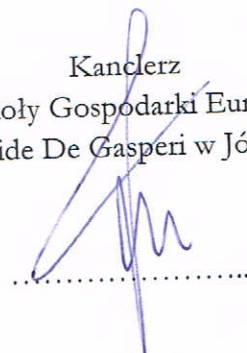 Kanclerz
oły Gospodarki Eur
ide De Gasperi w Jó